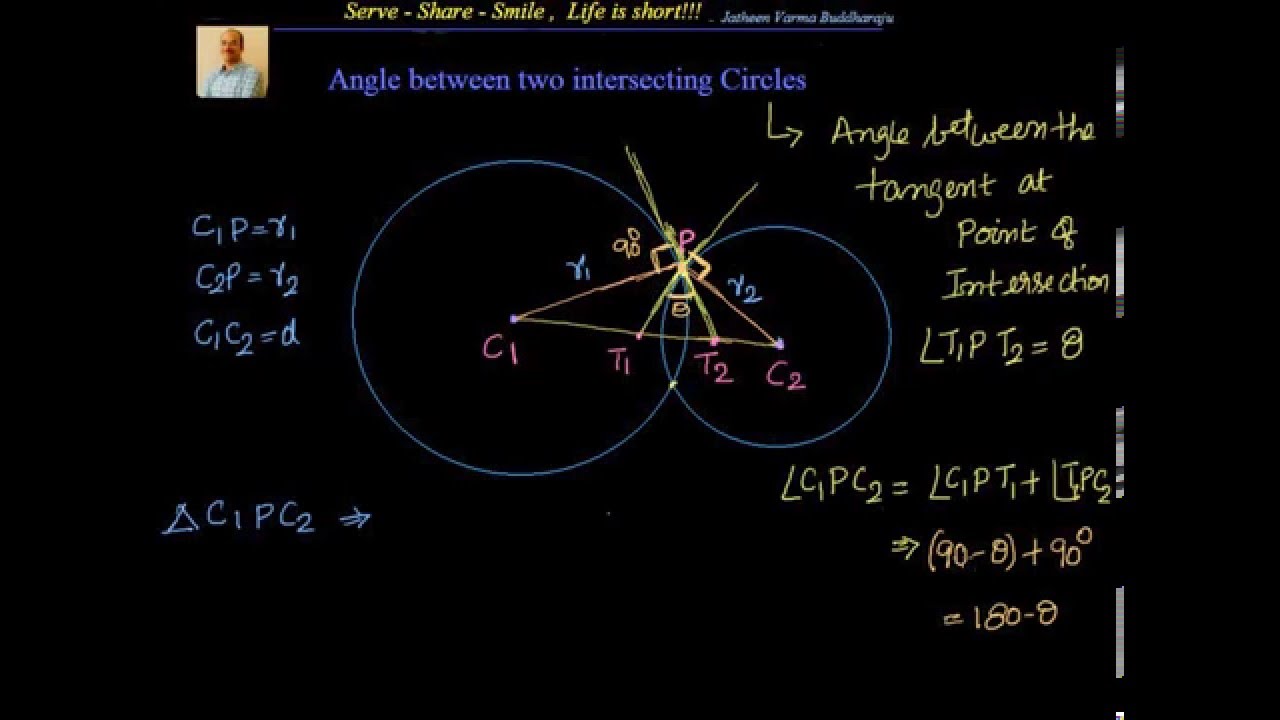 Serve - Share - Smile , Life is short!!! - Jatheen Varma Buddharaju
Angle between two intersecting Circles
↳ Angle between the
tangent at
Point of
Intersection
∠T₁PT₂ = θ
C₁P = r₁
C₂P = r₂
C₁C₂ = d
90°
P
r₁
r₂
θ
C₁
T₁
T₂
C₂
∠C₁PC₂ = ∠C₁PT₁ + ∠T₁PC₂
⇒ (90-θ) + 90°
= 180-θ
Δ C₁PC₂ ⇒